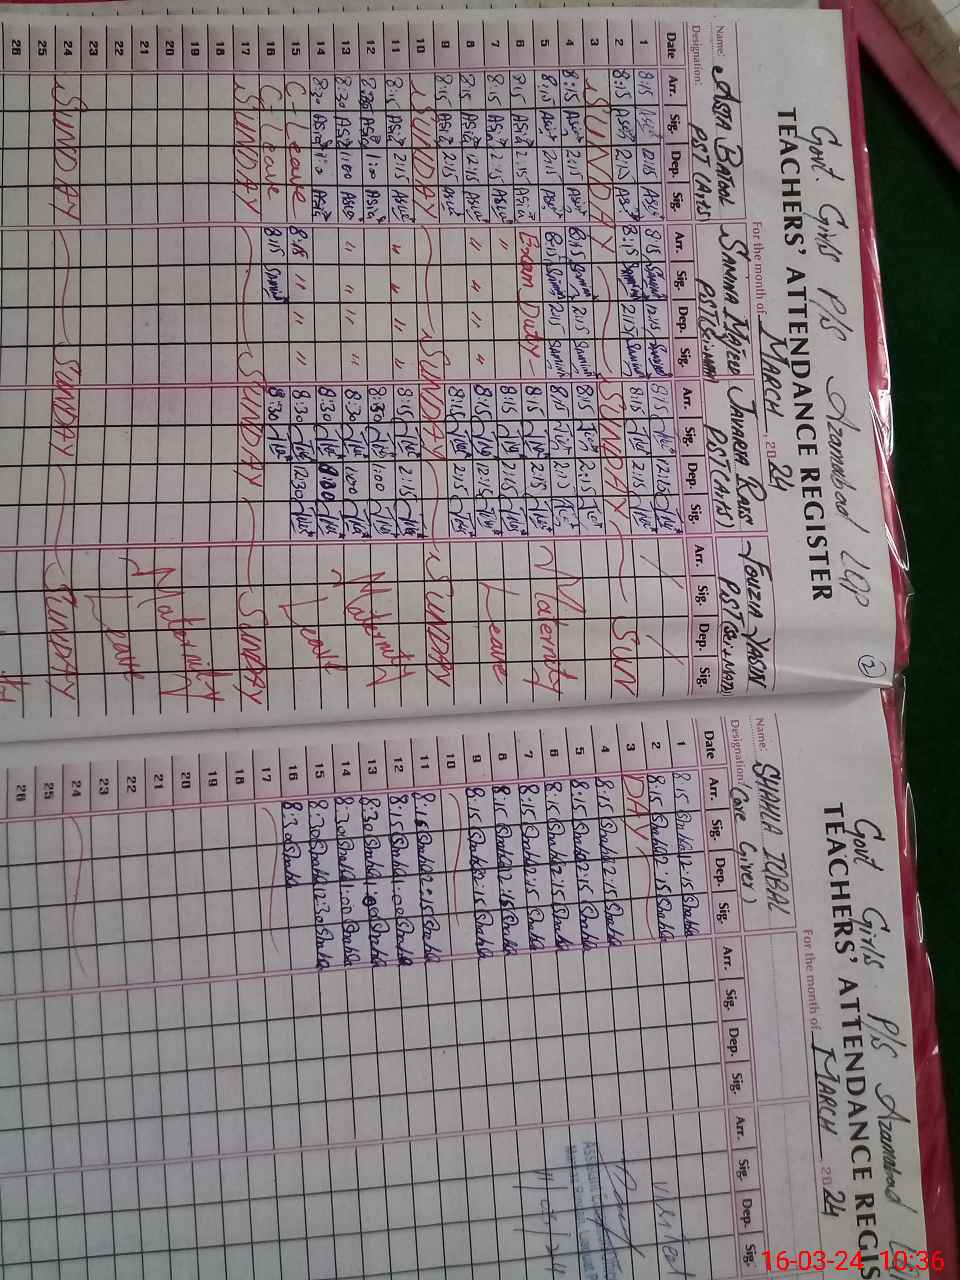 Govt. Girls P/S Azamabad
TEACHERS' ATTENDANCE REGISTER
For the month of MARCH, 2024
Name: ASIA BATOOL SAMINA MAJEED JAVARIA RAIS FOUZIA YASIN
Designation: PST (Arts) PST (Sci-Math) PST (Arts) PST (Sci-Math)
Date Arr. Sig. Dep. Sig. Arr. Sig. Dep. Sig. Arr. Sig. Dep. Sig. Arr. Sig. Dep. Sig.
1 8:15 Asia 12:15 Asia 8:15 Samina 12:15 Samina 8:15 12:15
2 8:15 Asia 2:15 Asia 8:15 Samina 2:15 Samina 8:15 2:15
3 SUNDAY SUNDAY SUN
4 8:15 Asia 2:15 Asia 8:15 Samina 2:15 Samina 8:15 2:15
5 8:15 Asia 2:15 Asia 8:15 Samina 2:15 Samina 8:15 2:15 Maternity
6 8:15 Asia 2:15 Asia Exam Duty 8:15 2:15
7 8:15 Asia 2:15 Asia " 8:15 2:15 Leave
8 8:15 Asia 12:15 Asia " " " " 8:15 12:15
9 8:15 Asia 2:15 Asia 8:15 2:15
10 SUNDAY SUNDAY SUNDAY
11 8:15 Asia 2:15 Asia " " " " 8:15 2:15
12 8:30 Asia 1:00 Asia 8:30 1:00 Maternity
13 8:30 Asia 1:00 Asia " " " " 8:30 1:00
14 8:30 Asia 1:00 Asia 8:30 1:00 Leave
15 C-Leave 8:15 " " " 8:30 12:30
16 C-Leave 8:15 Samina 8:30
17 SUNDAY SUNDAY SUNDAY
18
19 Maternity
20
21
22 Leave
23
24 SUNDAY SUNDAY SUNDAY
25
26
2
Govt Girls P/S Azamabad
TEACHERS' ATTENDANCE REGIS
For the month of MARCH, 2024
Name: SHAHLA IQBAL
Designation: (Care Giver)
Date Arr. Sig. Dep. Sig. Arr. Sig. Dep. Sig. Arr. Sig. Dep. Sig.
1 8:15 Shahla 12:15 Shahla
2 8:15 Shahla 2:15 Shahla
3 DAY
4 8:15 Shahla 2:15 Shahla
5 8:15 Shahla 2:15 Shahla
6 8:15 Shahla 2:15 Shahla
7 8:15 Shahla 2:15 Shahla
8 8:15 Shahla 12:15 Shahla
9 8:15 Shahla 2:15 Shahla
10
11 8:15 Shahla 2:15 Shahla
12 8:15 Shahla 1:00 Shahla
13 8:30 Shahla 1:00 Shahla
14 8:30 Shahla 1:00 Shahla
15 8:30 Shahla 12:30 Shahla
16 8:30 Shahla
17
18
19
20
21
22
23
24
25
26
16-03-24 10:36